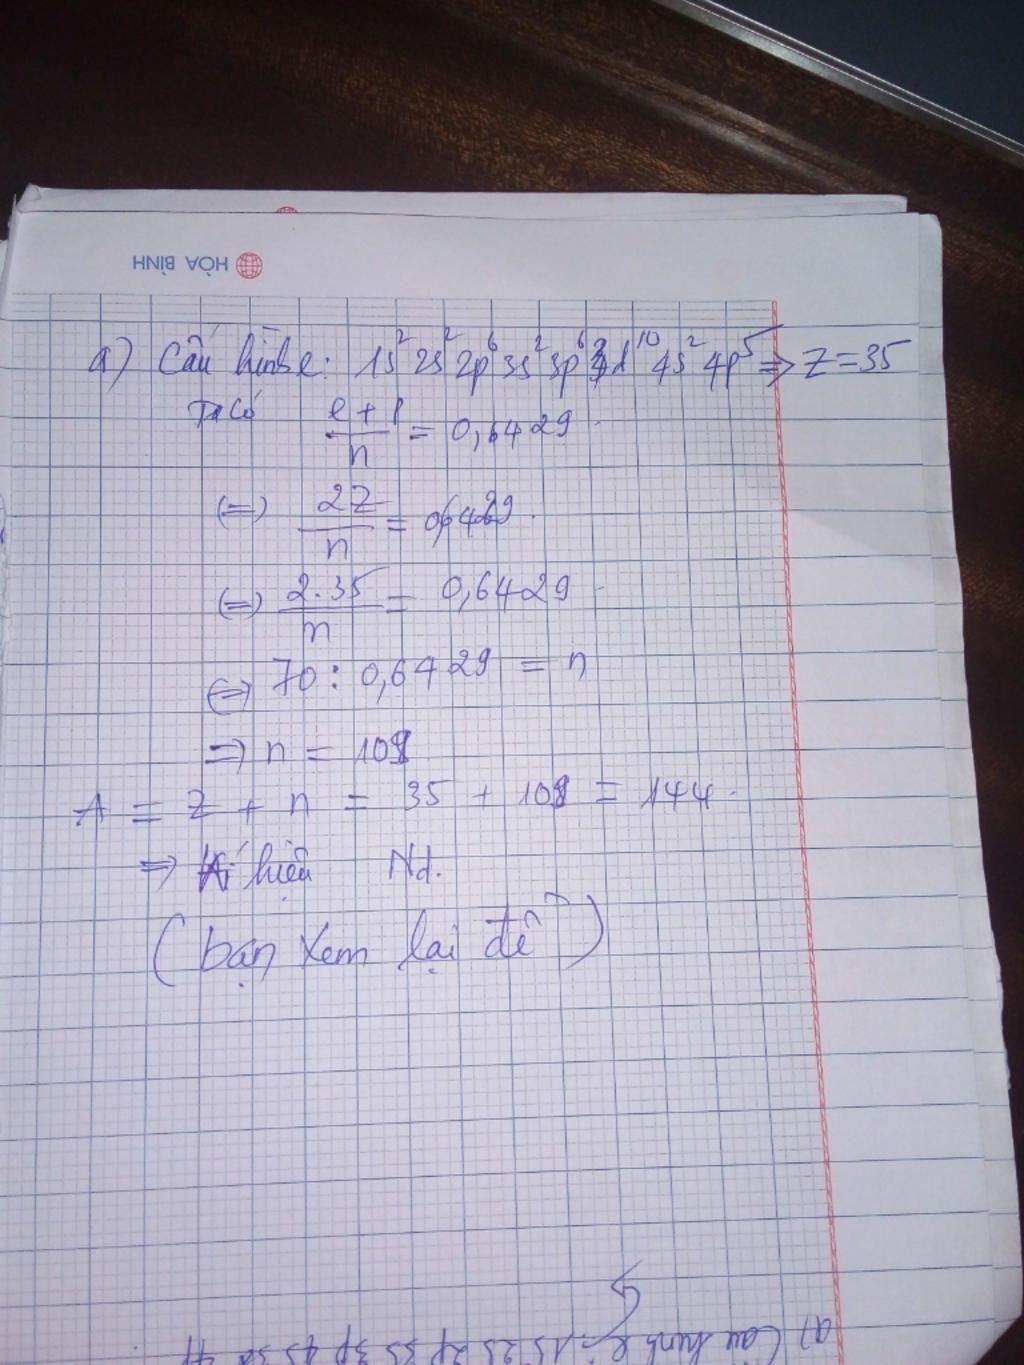 HÒA BÌNH
a) Cấu hình e: 1s² 2s² 2p⁶ 3s² 3p⁶ 3d¹⁰ 4s² 4p⁵ => Z = 35
Ta có (e + p)/n = 0,6429
(=) 2Z/n = 0,6429
(=) 2.35/n = 0,6429
(=) 70 : 0,6429 = n
=> n = 109
A = Z + n = 35 + 109 = 144
=> Kí hiệu Nd.
(bạn xem lại đề)
a) Cấu hình e: 1s 2s 2p 3s 3p 4s 3d 4p